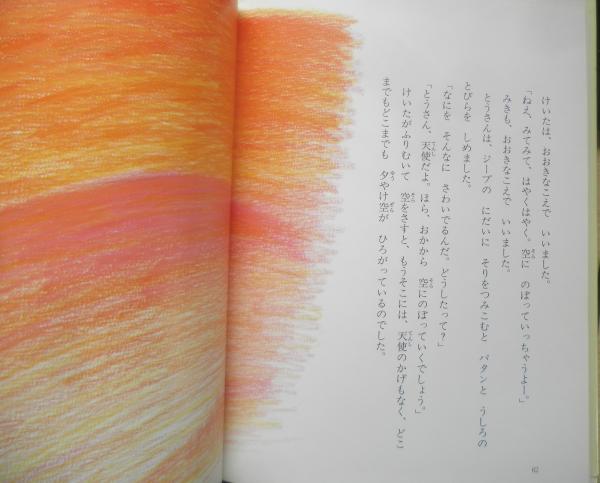 けいたは、おおきなこえで いいました。
「ねえ、みてみて、はやくはやく。空に のぼっていっちゃうよー。」
みきも、おおきなこえで いいました。
とうさんは、ジープの にだいに そりをつみこむと バタンと うしろの
とびらを しめました。
「なにを そんなに さわいでるんだ。どうしたって?」
「とうさん、天使だよ。ほら、おかから 空にのぼっていくでしょう。」
けいたがふりむいて 空をさすと、もうそこには、天使のかげもなく、どこ
までもどこまでも 夕やけ空が ひろがっているのでした。
62